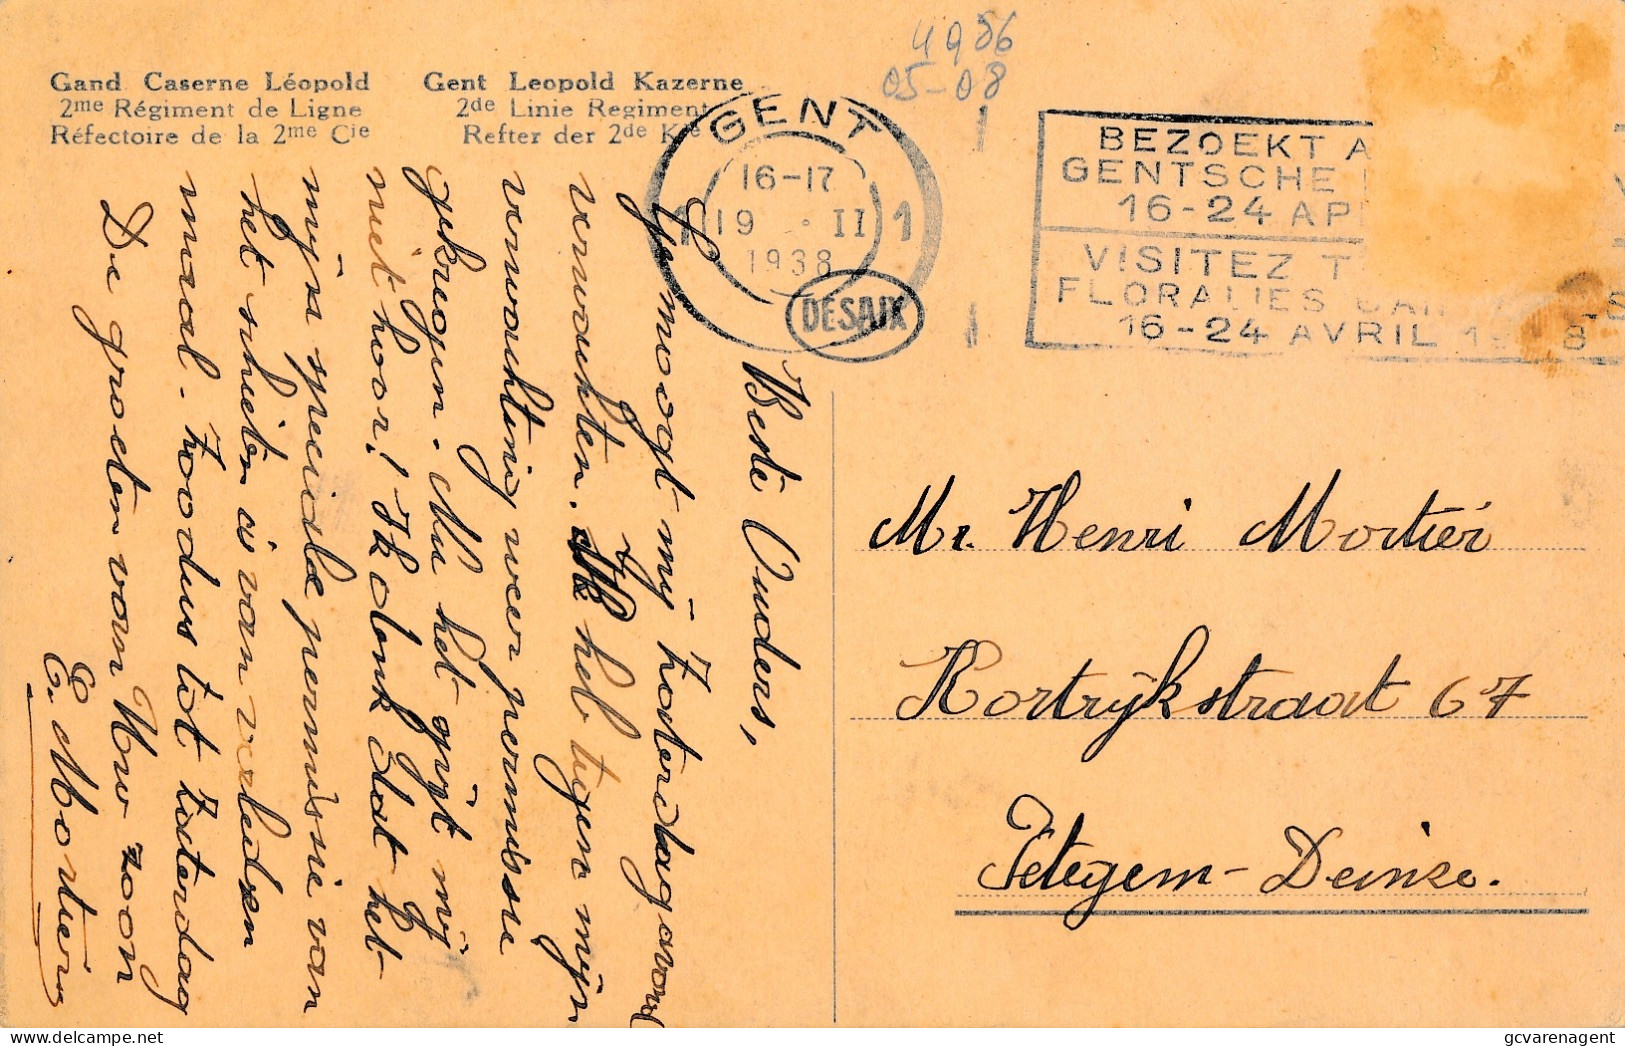 4986
05-08
Gand Caserne Léopold
2me Régiment de Ligne
Réfectoire de la 2me Cie
Gent Leopold Kazerne
2de Linie Regiment
Refter der 2de Kie
GENT
16-17
1 19 II 1
1938
DESAIX
BEZOEKT
GENTSCHE
16-24 AP
VISITEZ
FLORALIES
16-24 AVRIL
Beste Ouders,
Ge moogt mij zaterdagavond
verwachten. Ik heb tegen mijn
verwachting weer permissie
gekregen. Nu het gijt mij
niet hoor! Ik denk dat het
mijn speciale permissie van
het schieten is van verleden
maal. Zoodus tot zaterdag
De groeten van Uw zoon
E. Mortier
Mr. Henri Mortier
Kortrijkstraat 67
Petegem-Deinze.
gcvarenagent